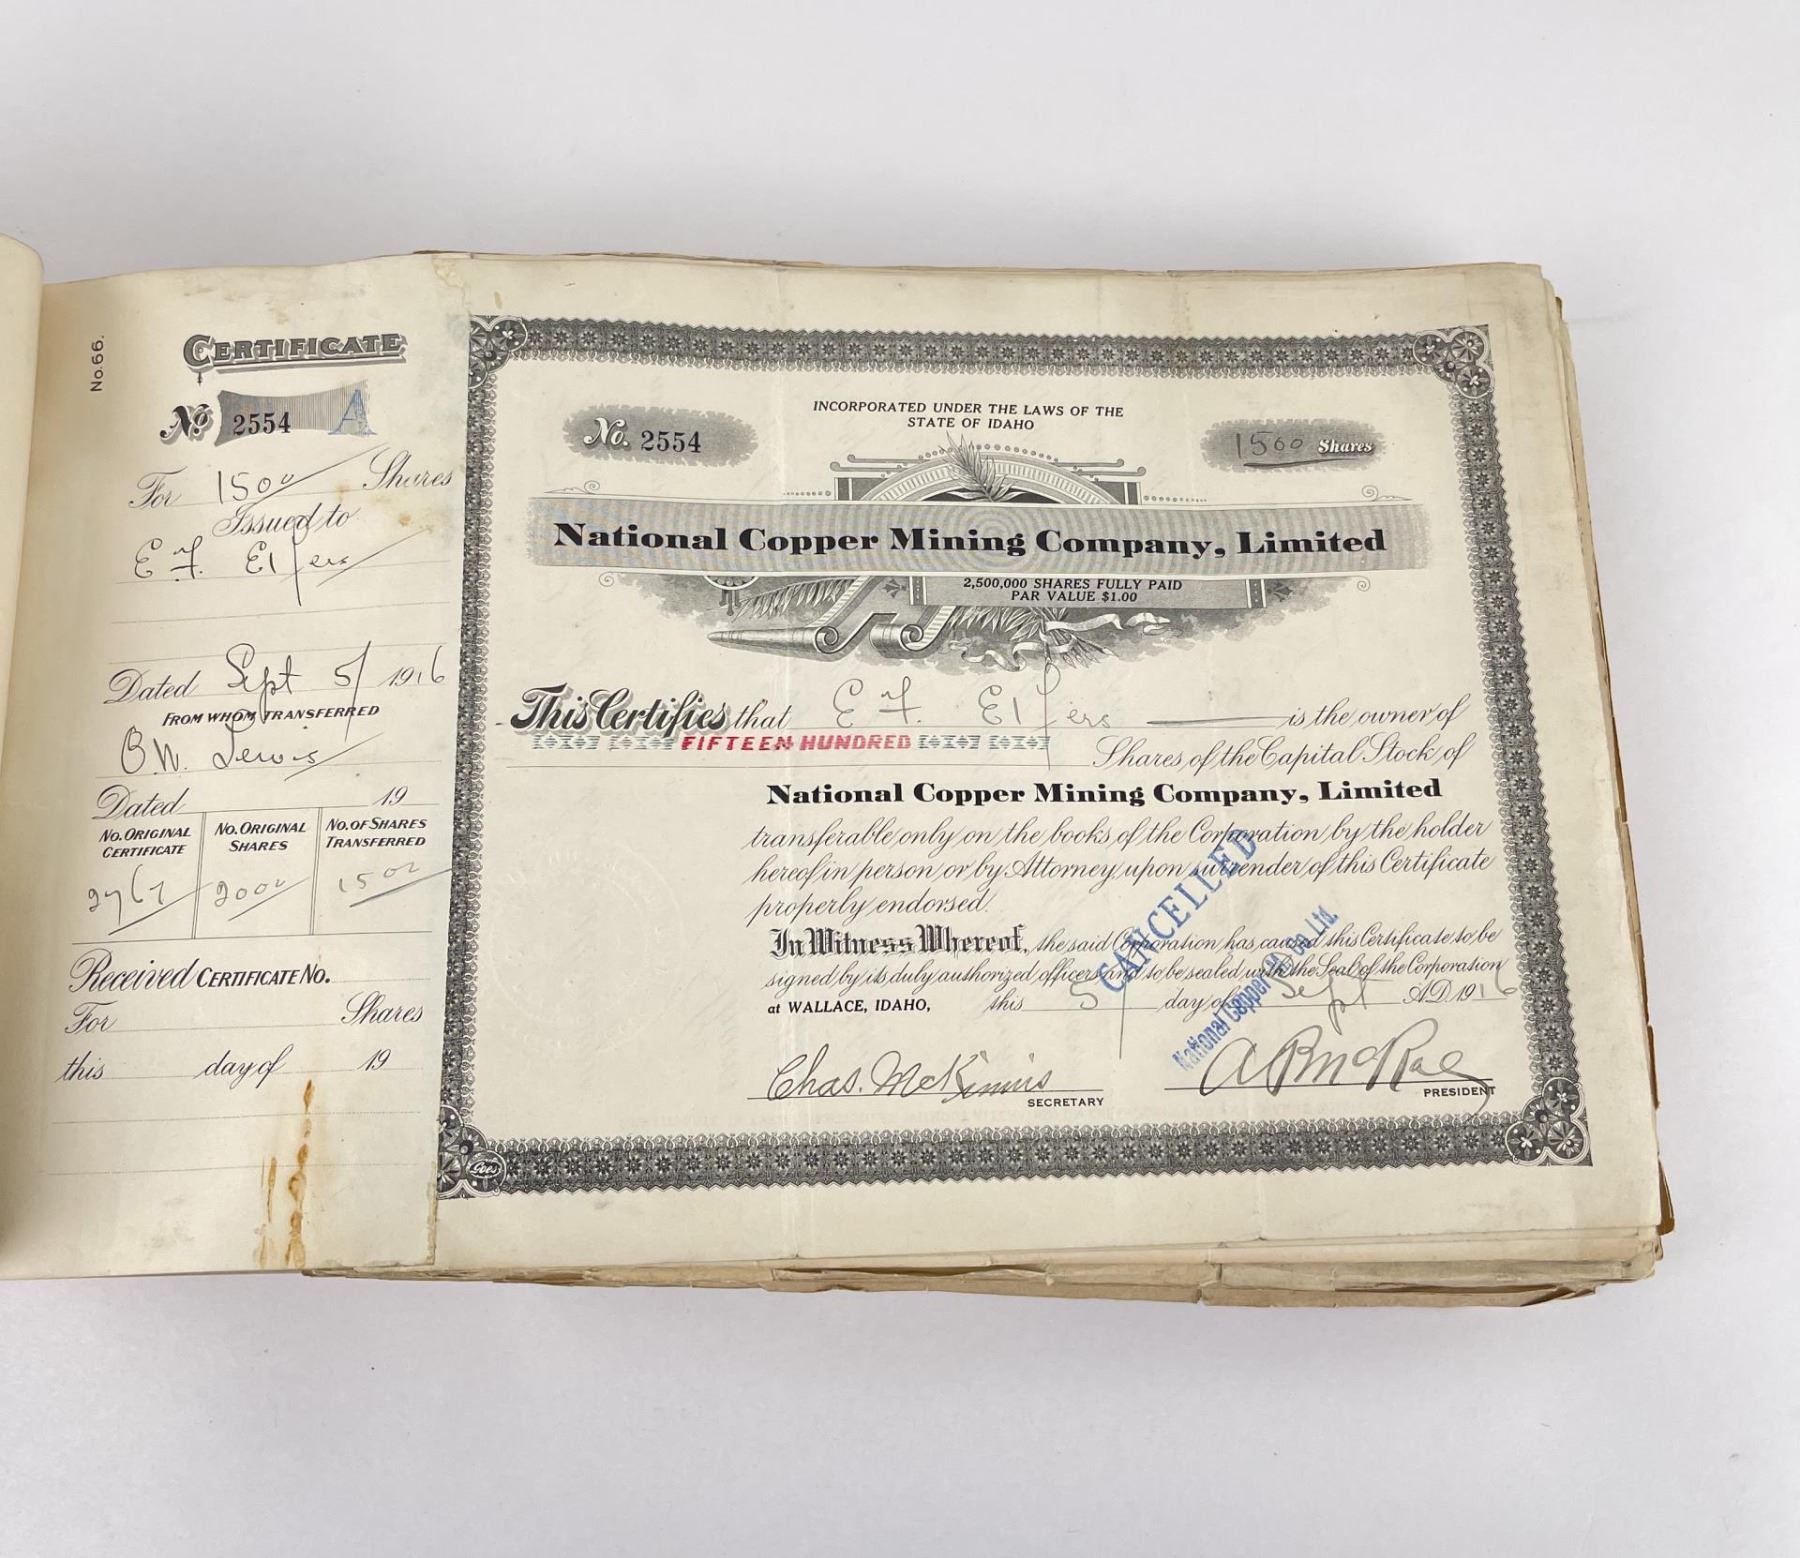 No.66.
CERTIFICATE
No 2554 A
For 1500 Shares
Issued to
E F. Elfers
Dated Sept 5/ 1916
FROM WHOM TRANSFERRED
B.W. Lewis
Dated 19
No. ORIGINAL CERTIFICATE
No. ORIGINAL SHARES
No. OF SHARES TRANSFERRED
2467 2000 1500
Received CERTIFICATE No.
For Shares
this day of 19
INCORPORATED UNDER THE LAWS OF THE
STATE OF IDAHO
No. 2554
1500 Shares
National Copper Mining Company, Limited
2,500,000 SHARES FULLY PAID
PAR VALUE $1.00
This Certifies that E F. Elfers is the owner of
FIFTEEN HUNDRED
Shares of the Capital Stock of
National Copper Mining Company, Limited
transferable only on the books of the Corporation by the holder
hereof in person or by Attorney upon surrender of this Certificate
properly endorsed.
In Witness Whereof, the said Corporation has caused this Certificate to be
signed by its duly authorized officers and to be sealed with the Seal of the Corporation
at WALLACE, IDAHO, this 5/ day of Sept A.D. 1916
CANCELLED
National Copper M. Co. Ltd.
Chas. McKinnis
SECRETARY
A B McRae
PRESIDENT
Goes